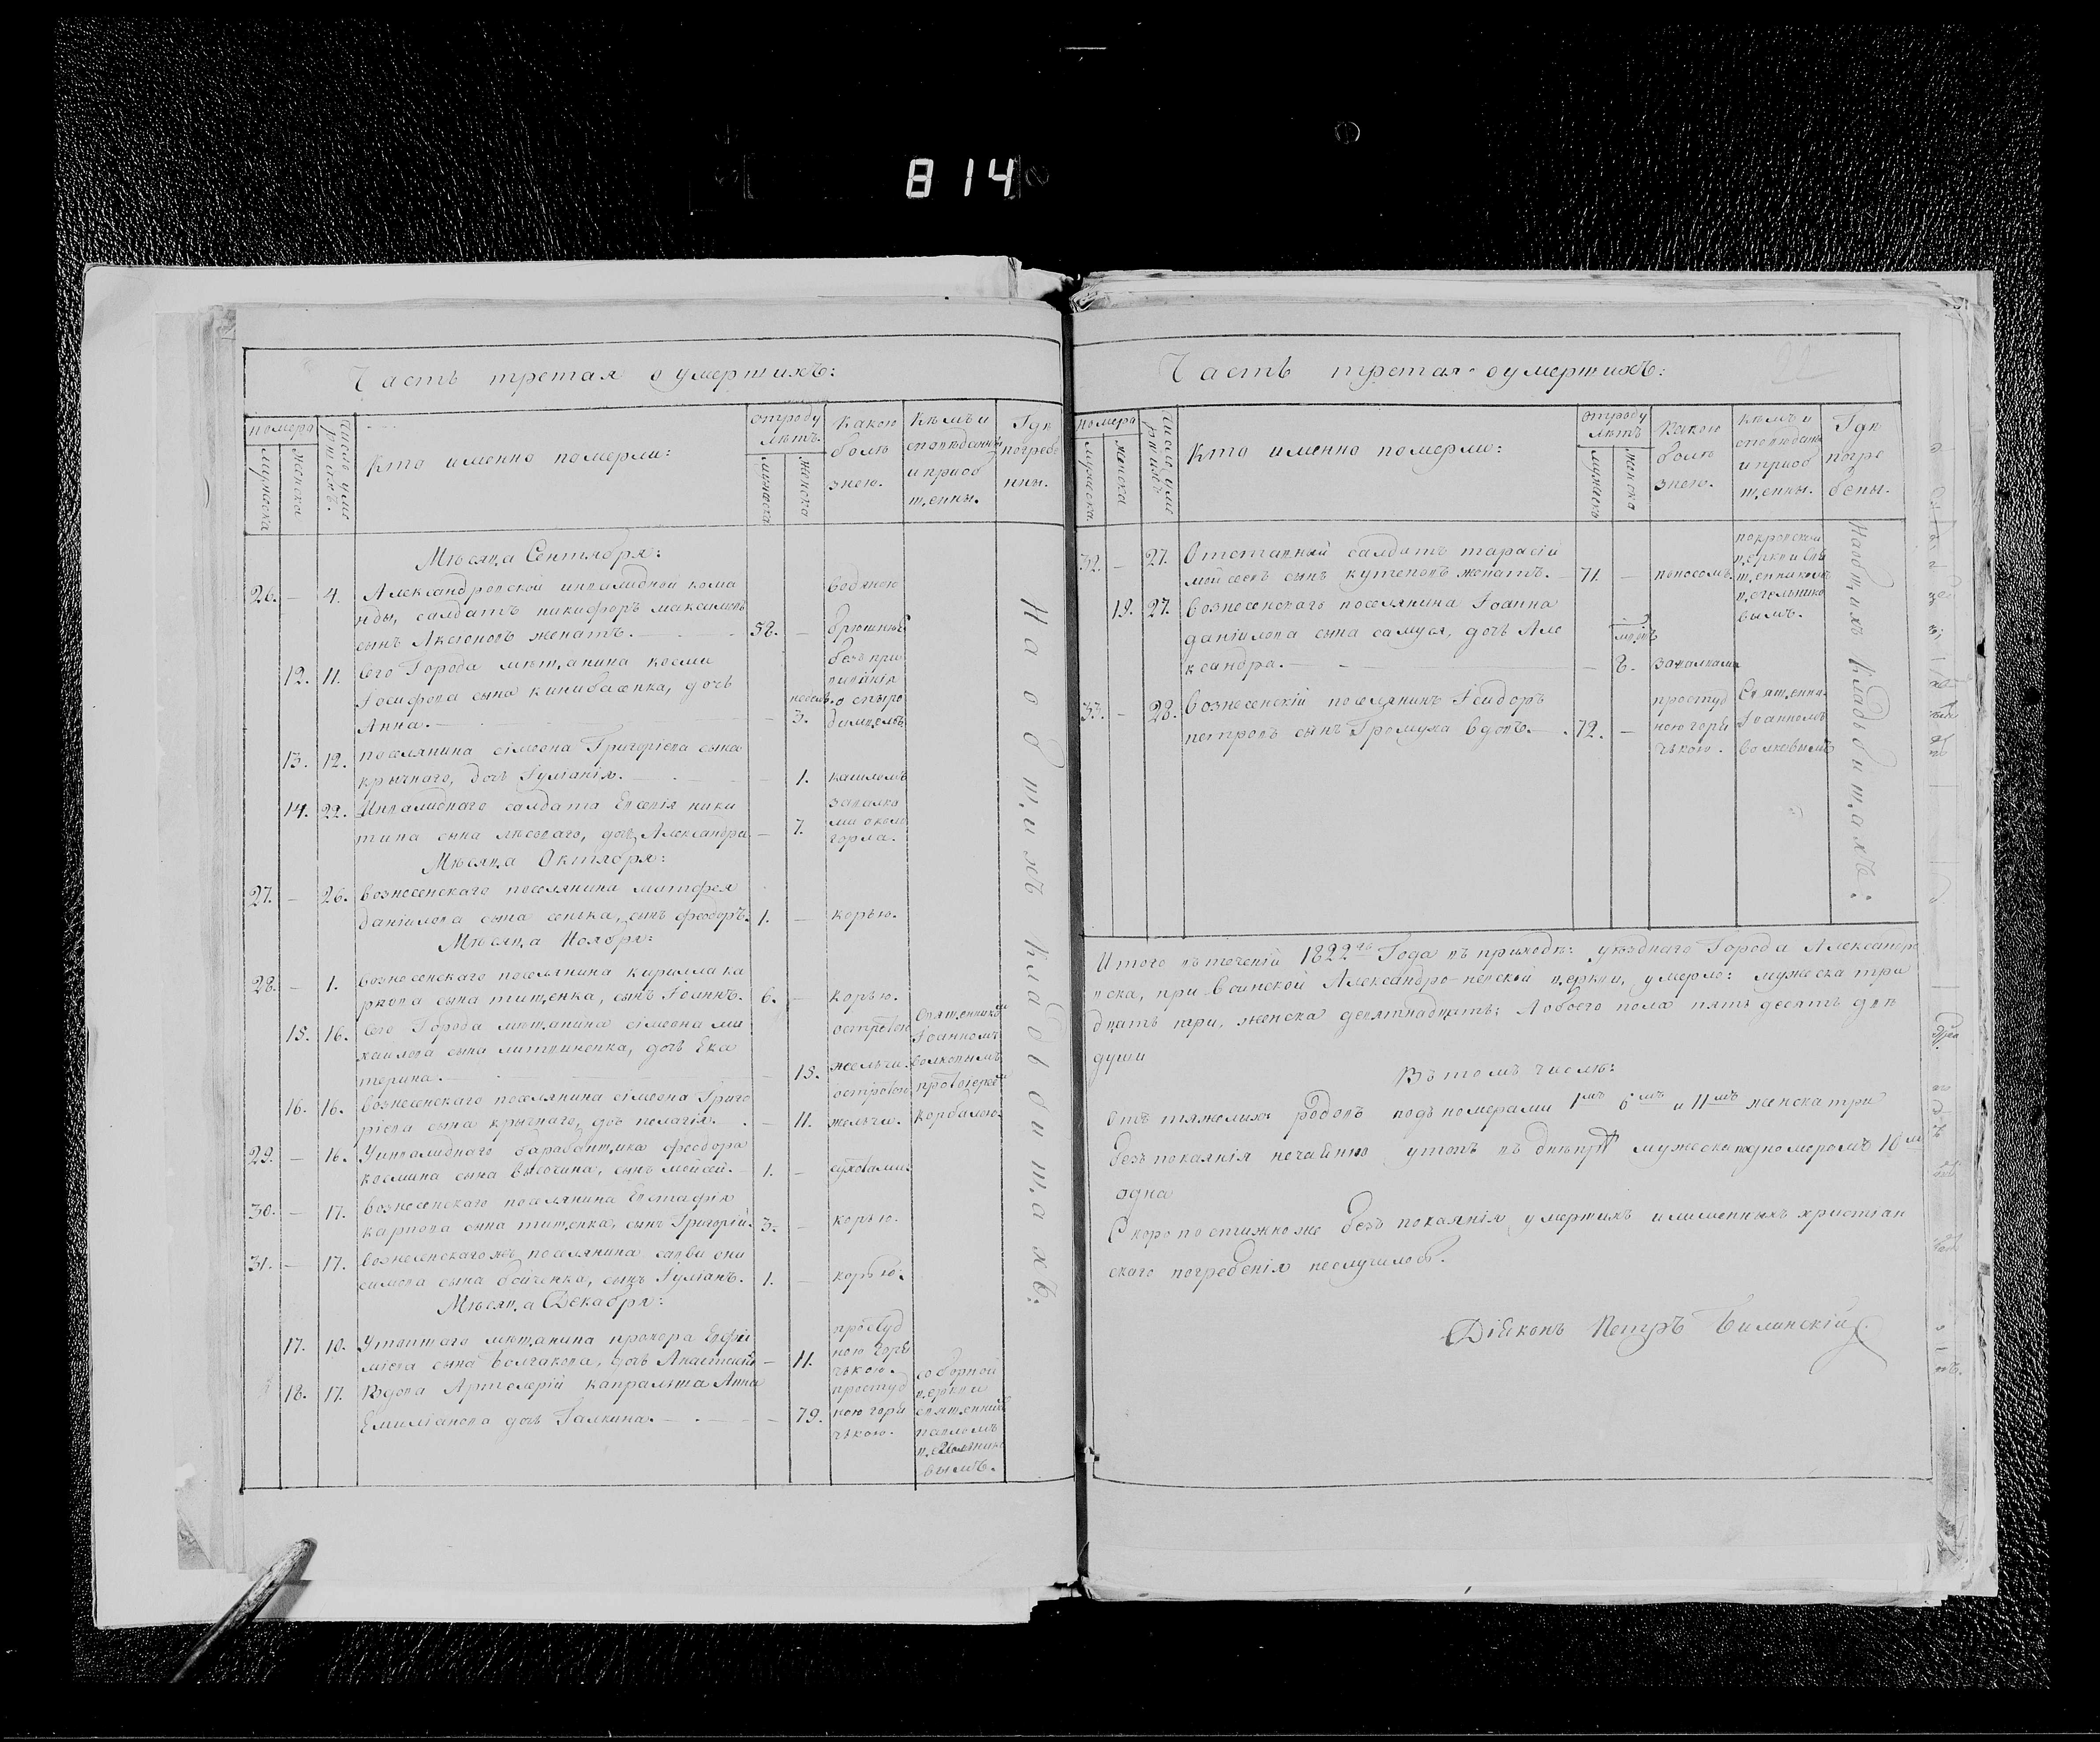 814
Часть третая о умершихъ:
номера
мужеска
женска
число уме
ршихъ.
Кто именно померли:
отроду
лѣтъ.
мужеска
женска
Какою
болѣ
знею.
Кѣмъ и
сповѣданы
и приоб
щенны.
Гдѣ
погребе
нны.
Мѣсяца Сентября:
26. — 4. Александровской инвалидной кома
нды, салдатъ никифоръ максимовъ
сынъ Аксюновъ женатъ. — 58. —
водяною
брюшною
12. 11. Сего Города мѣщанина косми
Іосифова сына кинибасенка, дочь
Анна. — — недель 3.
безъ при
о спыро
13. 12. поселянина симеона Григоріева сына
крычнаго, дочь Іуліанія. — 1. кашлемъ
14. 22. Инвалиднаго салдата Евсевія ники
тина сына лѣсоваго, дочь Александра — 7.
завалка
ми около
горла.
Мѣсяца Октября:
27. — 26. вознесенскаго поселянина матфея
даніилова сына сенька, сынъ феодоръ. 1. — корью.
Мѣсяца Ноября:
28. — 1. вознесенскаго поселянина кирилла ка
рпова сына тищенка, сынъ Іоаннъ. 6. — корью.
15. 16. Сего Города мѣщанина симеона ми
хайлова сына литвиненка, дочь Ека
терина. — — 15.
остротою
желчи.
16. 16. вознесенскаго поселянина симеона Григо
ріева сына крычнаго, дочь пелагія. — 11.
остротою
желчи.
Священникомъ
Іоанномъ
волковымъ
протоіереемъ
корбалою
29. — 16. Уинвалиднаго барабанщика феодора
космина сына высочина, сынъ мойсей. — 1. —
30. — 17. вознесенскаго поселянина Евстафія
карпова сына тищенка, сынъ Григорій. 3. — корью.
31. — 17. вознесенскаго жъ поселянина саввы они
симова сына бойченка, сынъ Іуліанъ. 1. — корью.
Мѣсяца Декабря:
17. 10. Утоптаго мѣщанина прохора Ефи
міева сына болгакова, дочь Анастасія — 11.
простуд
ною горя
чкою.
18. 17. Вдова Артелерій капральша Анна
Емиліанова дочь Галкина. — — 79.
простуд
ною горя
чкою.
соборной
церкви
священникомъ
павломъ
цегельнико
вымъ.
На общихъ кладьбищахъ:
Часть третая о умершихъ:
22
номера
мужеска
женска
число уме
ршихъ
Кто именно померли:
отроду
лѣтъ
мужеска
женска
Какою
болѣ
знею.
Кѣмъ и
сповѣданы
и приоб
щенны.
Гдѣ
погре
бены.
32. — 27. Отставный салдатъ тарасій
мойсеевъ сынъ кутеповъ женатъ. — 71. — поносомъ.
покровской
церкви свя
щенникомъ
цегельнико
вымъ.
19. 27. вознесенскаго поселянина Іоанна
даніилова сына самуся, дочь Але
ксандра. — — 8. завалками
33. — 28. вознесенскій поселянинъ Ісидоръ
петровъ сынъ Громуха вдовъ. — 72. —
простуд
ною горя
чкою.
Священни
Іоанномъ
волковымъ
На общихъ кладьбищахъ:
Итого въ теченіи 1822го Года въ приходѣ: уѣзднаго Города Александро
вска, при воинской Александро-невской церкви, умерло: мужеска три
дцать три, женска девятнадцать; А обоего пола пять десятъ двѣ
души
Въ томъ числѣ:
Отъ тяжелыхъ родовъ подъ номерами 1мъ 6мъ и 11мъ женска три
безъ покаянія нечаянно утопъ въ днепрѣ мужеска подъ номеромъ 10м
одна
Скоро постижно же безъ покаянія умершихъ и лишенныхъ христиан
скаго погребенія неслучилось.
Діяконъ Петръ Билинскій